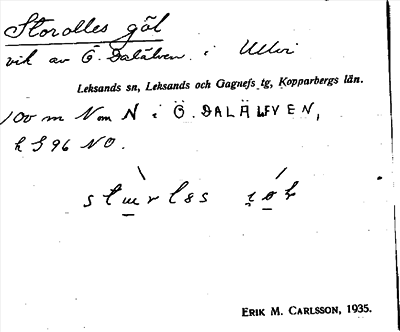 Storolles göl
vik av Ö. Dalälven i Ullvi
Leksands sn, Leksands och Gagnefs tg, Kopparbergs län.
100 m N om N i Ö. DALÄLVEN,
k S 96 NO.
ERIK M. CARLSSON, 1935.